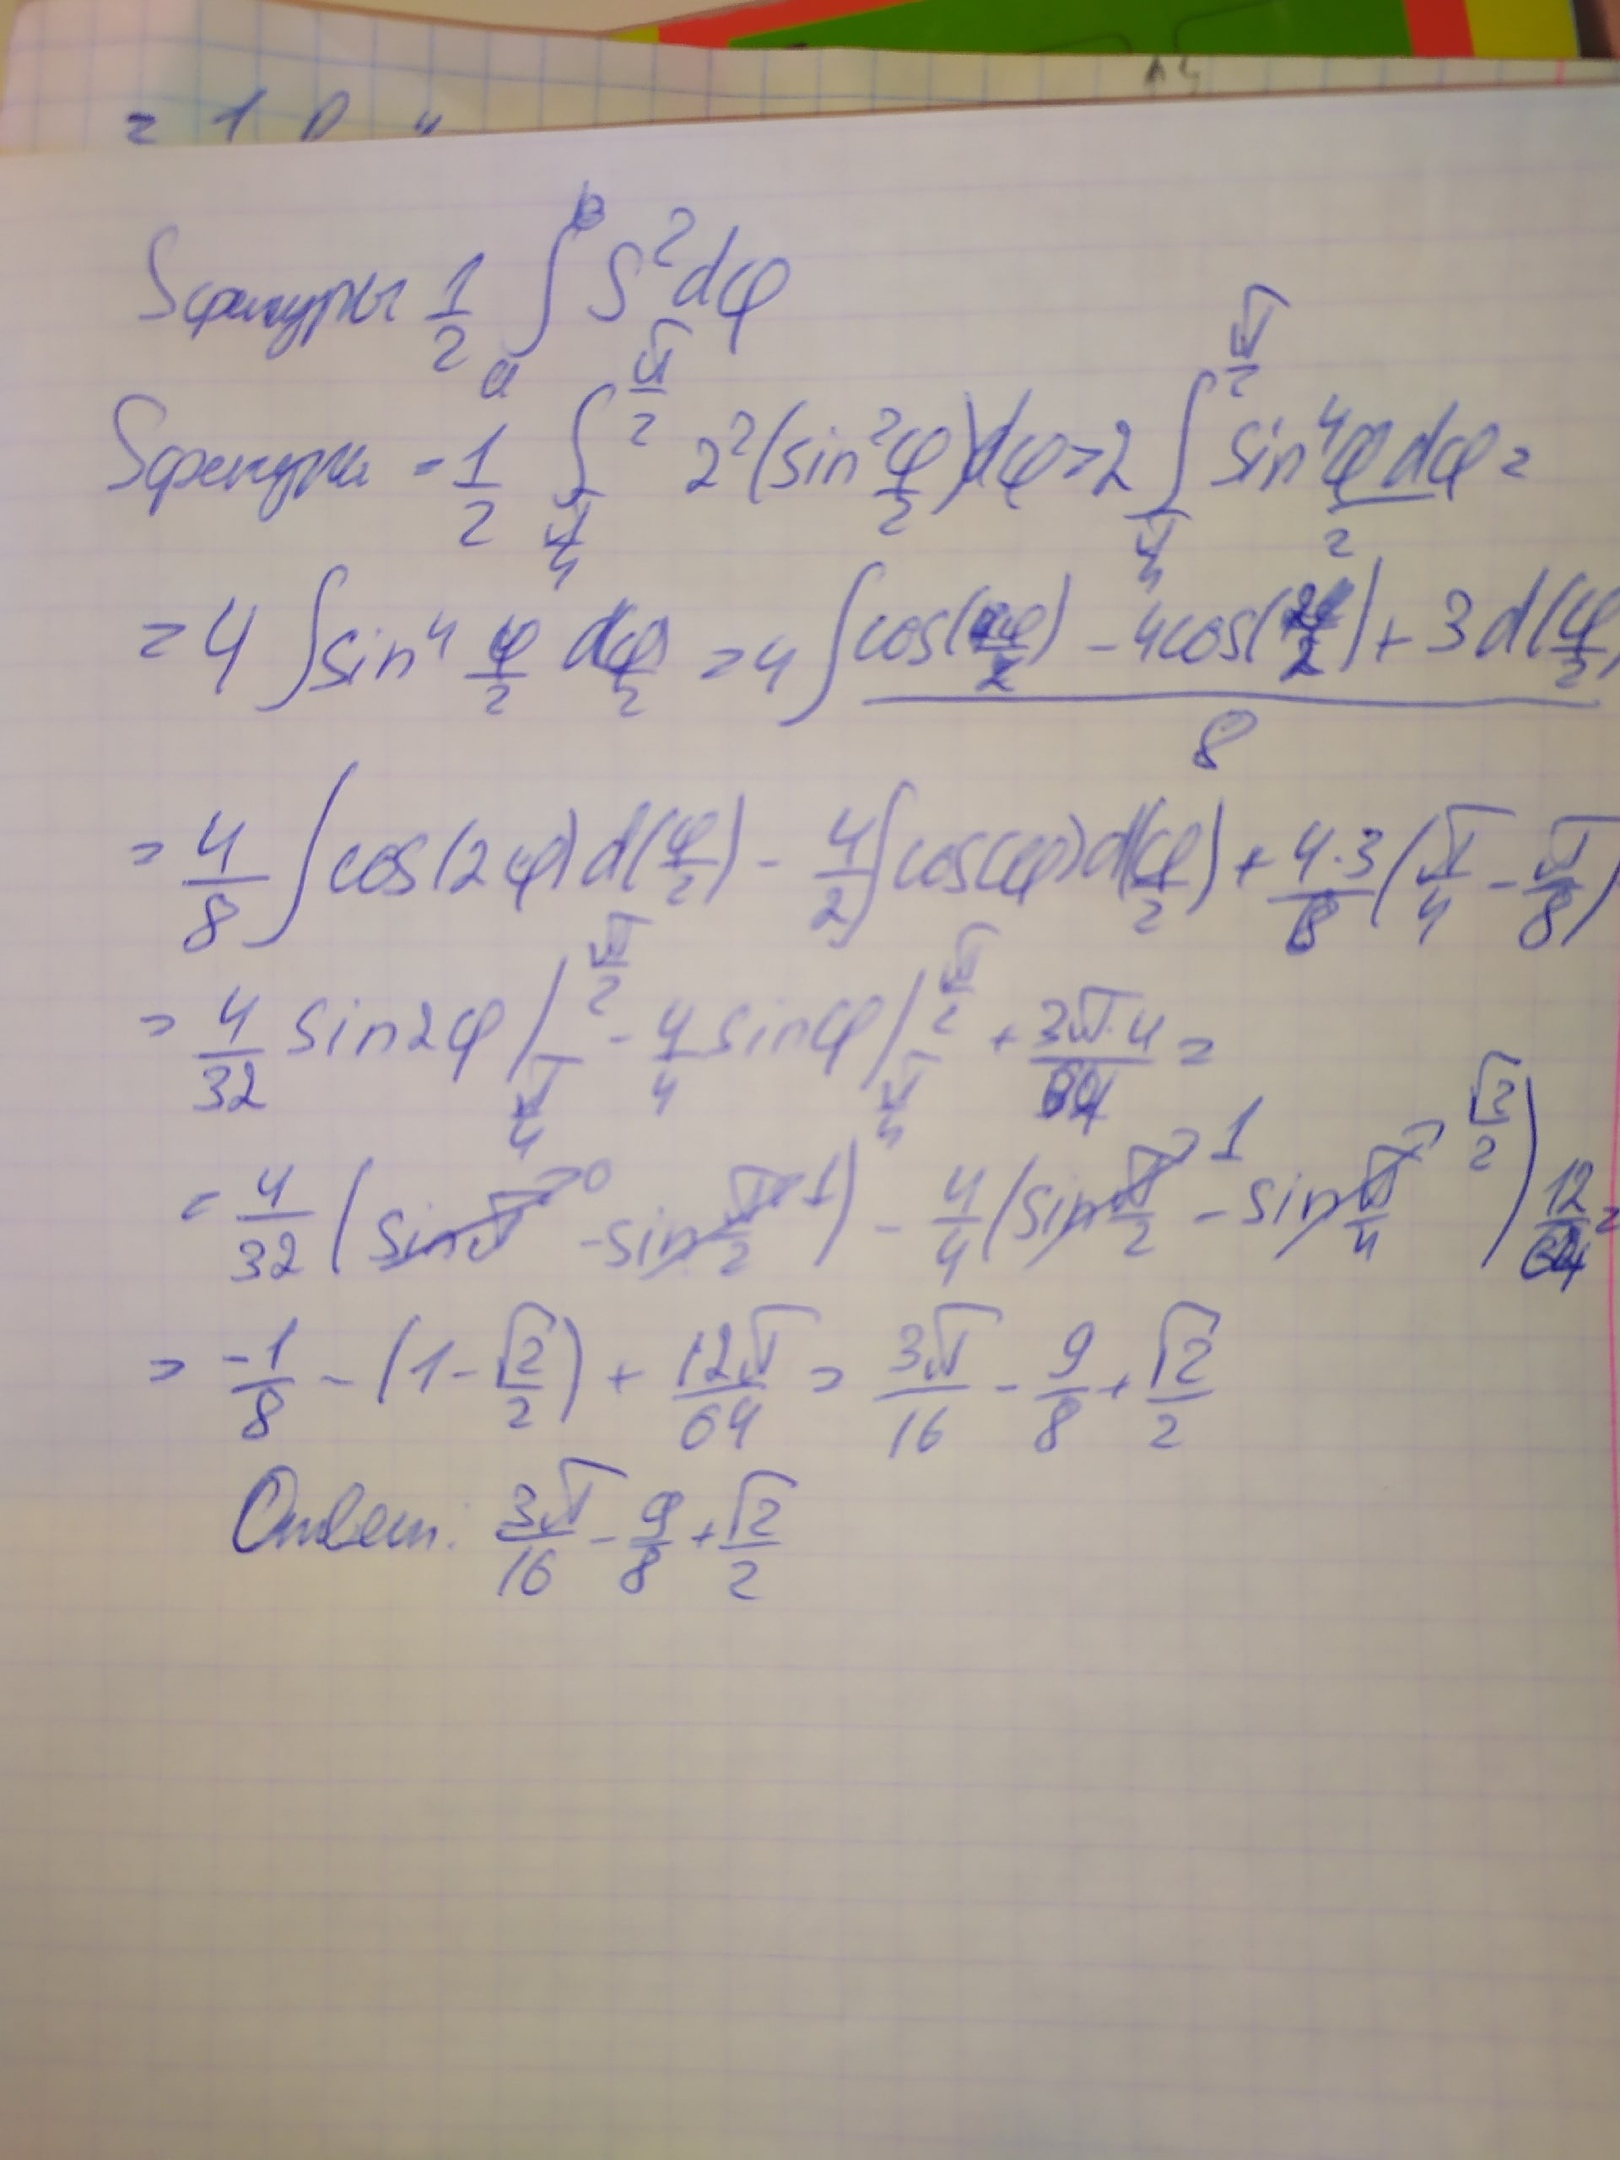 = 1
Sфигуры 1/2 ∫_a^β S² dφ
Sфигуры = 1/2 ∫_{π/4}^{π/2} 2² (sin² φ/2) dφ = 2 ∫_{π/4}^{π/2} sin⁴ φ/2 dφ =
= 4 ∫ sin⁴ φ/2 d φ/2 = 4 ∫ (cos( ) - 4cos( ) + 3 d(φ/2))/8
= 4/8 ∫ cos(2φ) d(φ/2) - 4/2 ∫ cos(φ) d(φ/2) + 4·3/8 (π/4 - π/8)
= 4/32 sin2φ |_{π/4}^{π/2} - 4/4 sinφ |_{π/4}^{π/2} + 3π·4/64 =
= 4/32 (sinπ →0 - sin π/2 →1) - 4/4 (sin π/2 →1 - sin π/4 → √2/2) 12/64 =
= -1/8 - (1 - √2/2) + 12π/64 = 3π/16 - 9/8 + √2/2
Ответ: 3π/16 - 9/8 + √2/2